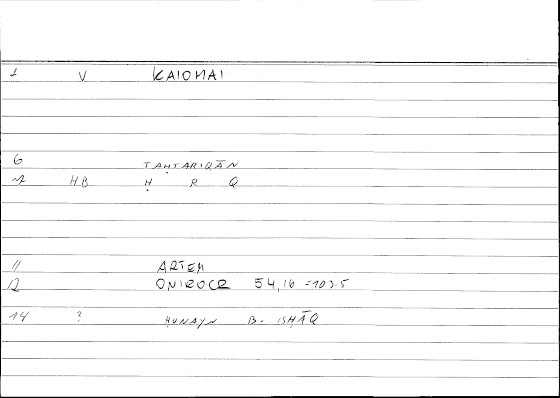 1 V KAIONAI
6 TAḤTARIQĀN
7 HB Ḥ R Q
11 ARTEM
12 ONIROCR 54,16 = 103.5
14 ? ḤUNAYN B. ISḤĀQ